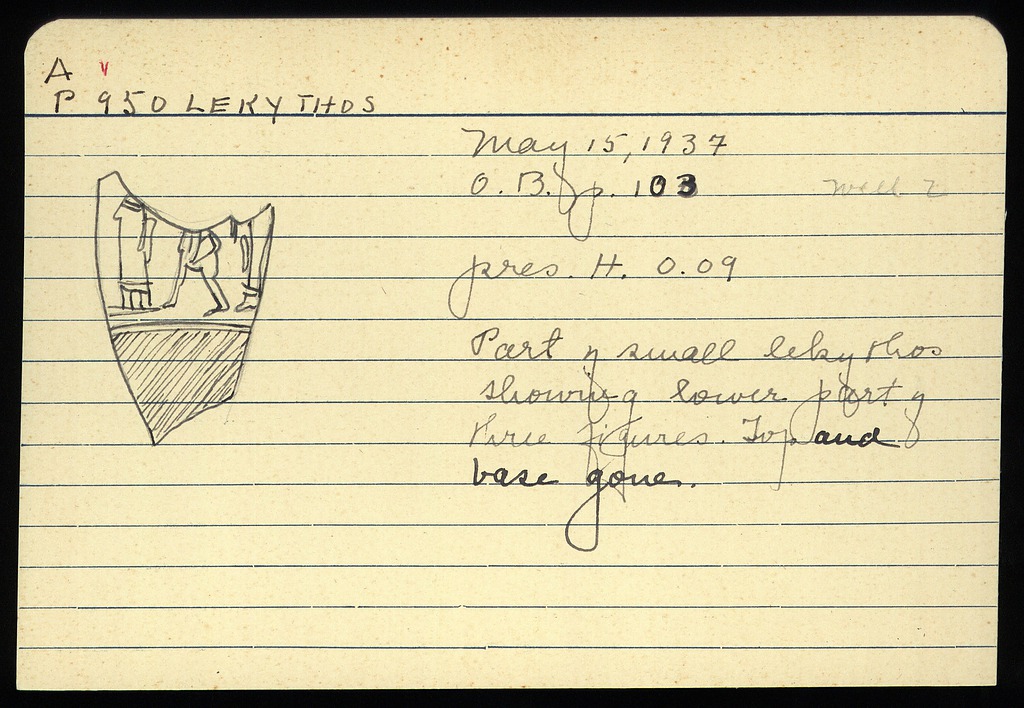 A v
P 950 LEKYTHOS
May 15, 1937
O. B. p. 103 Well 2
pres. H. 0.09
Part of small lekythos
showing lower part of
three figures. Top and
base gone.